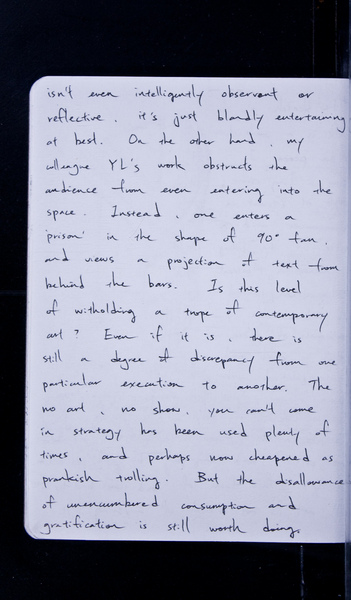 isn't even intelligently observant or
reflective. it's just blandly entertaining
at best. On the other hand, my
colleague YL's work obstructs the
audience from even entering into the
space. Instead, one enters a
'prison' in the shape of 90° fan,
and views a projection of text from
behind the bars. Is this level
of witholding a trope of contemporary
art? Even if it is, there is
still a degree of discrepancy from one
particular execution to another. The
no art, no show, you can't come
in strategy has been used plenty of
times, and perhaps now cheapened as
prankish trolling. But the disallowance
of unencumbered consumption and
gratification is still worth doing.